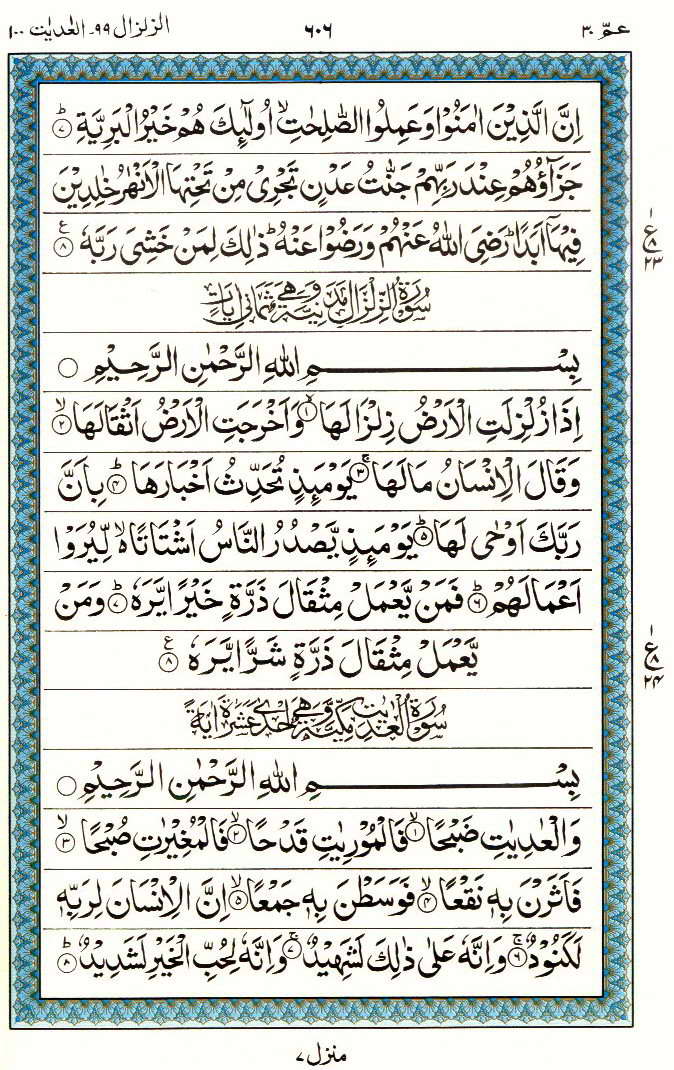 عمّ ٣٠
٦٠٦
الزلزال ٩٩۔ العٰدیٰت ١٠٠
اِنَّ الَّذِیْنَ اٰمَنُوْا وَعَمِلُوا الصّٰلِحٰتِ ۙ اُولٰٓئِکَ هُمْ خَیْرُ الْبَرِیَّةِ ؕ ﴿٧﴾
جَزَآؤُهُمْ عِنْدَ رَبِّهِمْ جَنّٰتُ عَدْنٍ تَجْرِیْ مِنْ تَحْتِهَا الْاَنْهٰرُ خٰلِدِیْنَ
فِیْهَاۤ اَبَدًا ؕ رَضِیَ اللّٰهُ عَنْهُمْ وَرَضُوْا عَنْهُ ؕ ذٰلِکَ لِمَنْ خَشِیَ رَبَّهٗ ﴿٨﴾ ع
١
ع
٨
٢٣
سُوْرَةُ الزِّلْزَالِ مَدَنِیَّةٌ وَّهِیَ ثَمَانِیْ اٰیَاتٍ
بِسْمِ اللّٰهِ الرَّحْمٰنِ الرَّحِیْمِ ○
اِذَا زُلْزِلَتِ الْاَرْضُ زِلْزَالَهَا ۙ ﴿١﴾ وَاَخْرَجَتِ الْاَرْضُ اَثْقَالَهَا ۙ ﴿٢﴾
وَقَالَ الْاِنْسَانُ مَا لَهَا ۚ ﴿٣﴾ یَوْمَئِذٍ تُحَدِّثُ اَخْبَارَهَا ؕ ﴿۴﴾ بِاَنَّ
رَبَّکَ اَوْحٰی لَهَا ؕ ﴿۵﴾ یَوْمَئِذٍ یَّصْدُرُ النَّاسُ اَشْتَاتًا ۙ۬ لِّیُرَوْا
اَعْمَالَهُمْ ؕ ﴿٦﴾ فَمَنْ یَّعْمَلْ مِثْقَالَ ذَرَّةٍ خَیْرًا یَّرَهٗ ؕ ﴿٧﴾ وَمَنْ
یَّعْمَلْ مِثْقَالَ ذَرَّةٍ شَرًّا یَّرَهٗ ﴿٨﴾ ع
١
ع
٨
٢۴
سُوْرَةُ الْعٰدِیٰتِ مَکِّیَّةٌ وَّهِیَ اِحْدٰی عَشَرَةَ اٰیَةً
بِسْمِ اللّٰهِ الرَّحْمٰنِ الرَّحِیْمِ ○
وَالْعٰدِیٰتِ ضَبْحًا ۙ ﴿١﴾ فَالْمُوْرِیٰتِ قَدْحًا ۙ ﴿٢﴾ فَالْمُغِیْرٰتِ صُبْحًا ۙ ﴿٣﴾
فَاَثَرْنَ بِهٖ نَقْعًا ۙ ﴿۴﴾ فَوَسَطْنَ بِهٖ جَمْعًا ۙ ﴿۵﴾ اِنَّ الْاِنْسَانَ لِرَبِّهٖ
لَکَنُوْدٌ ۚ ﴿٦﴾ وَاِنَّهٗ عَلٰی ذٰلِکَ لَشَهِیْدٌ ۚ ﴿٧﴾ وَاِنَّهٗ لِحُبِّ الْخَیْرِ لَشَدِیْدٌ ؕ ﴿٨﴾
منزل ٧